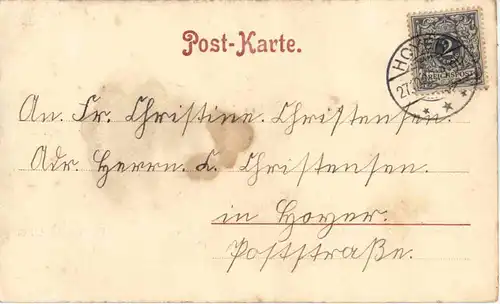 Post-Karte.
2
REICHSPOST
HOYER
27.
An. Fr. Christine. Christensen.
Adr. Herrn. C. Christensen.
in Hoyer.
Poststraße.